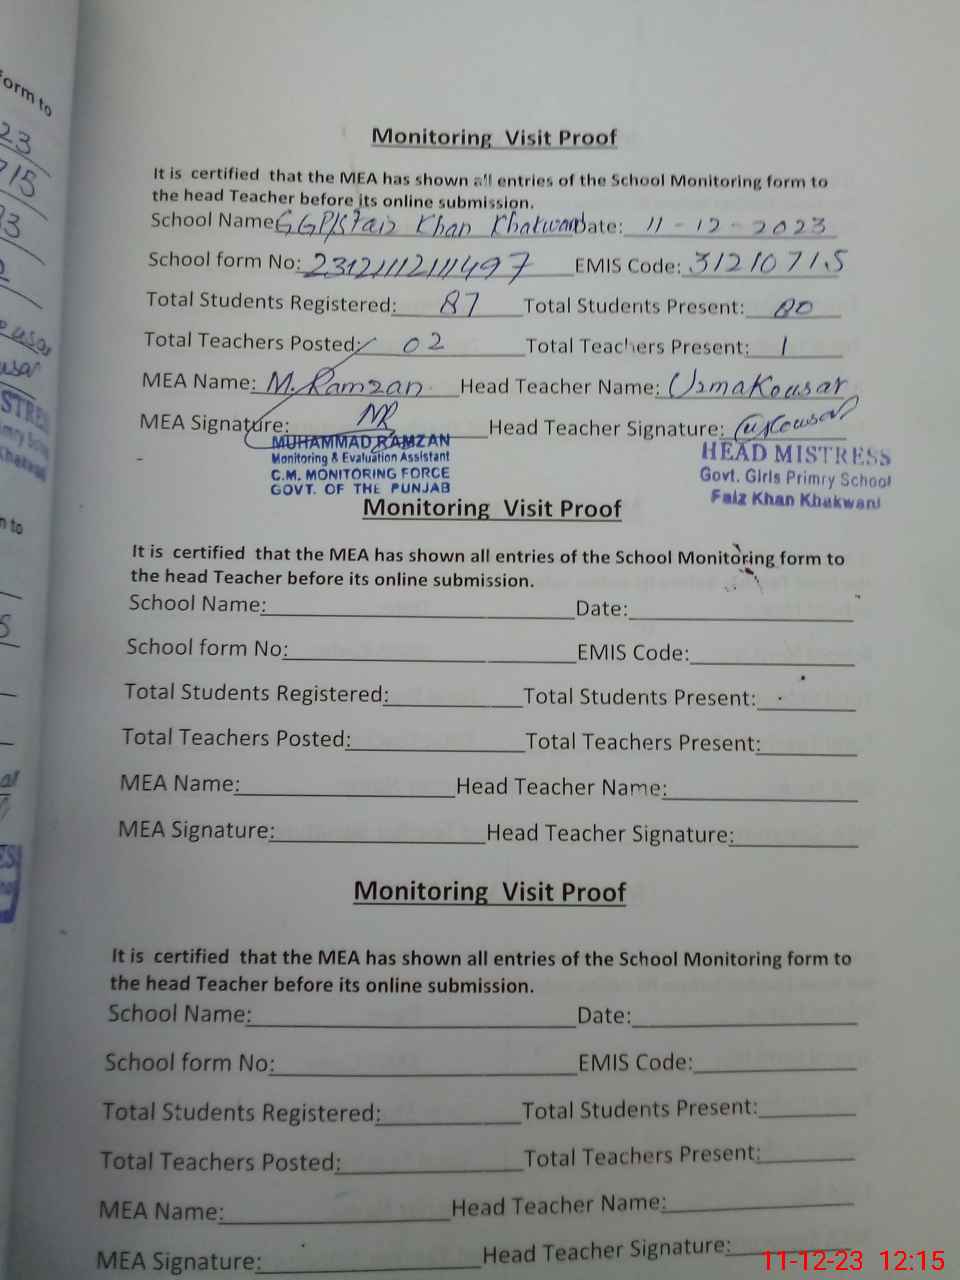 orm to
23
715
Monitoring Visit Proof
It is certified that the MEA has shown all entries of the School Monitoring form to
the head Teacher before its online submission.
School Name: GGP/S Faiz Khan Khakwani Date: 11-12-2023
School form No: 23121112111497 EMIS Code: 31210715
Total Students Registered: 87 Total Students Present: 80
Total Teachers Posted: 02 Total Teachers Present: 1
MEA Name: M. Ramzan Head Teacher Name: Uzma Kousar
MEA Signature: MR Head Teacher Signature: UKousar
MUHAMMAD RAMZAN
Monitoring & Evaluation Assistant
C.M. MONITORING FORCE
GOVT. OF THE PUNJAB
HEAD MISTRESS
Govt. Girls Primry School
Faiz Khan Khakwani
Monitoring Visit Proof
It is certified that the MEA has shown all entries of the School Monitoring form to
the head Teacher before its online submission.
School Name: Date:
School form No: EMIS Code:
Total Students Registered: Total Students Present:
Total Teachers Posted: Total Teachers Present:
MEA Name: Head Teacher Name:
MEA Signature: Head Teacher Signature:
Monitoring Visit Proof
It is certified that the MEA has shown all entries of the School Monitoring form to
the head Teacher before its online submission.
School Name: Date:
School form No: EMIS Code:
Total Students Registered: Total Students Present:
Total Teachers Posted: Total Teachers Present:
MEA Name: Head Teacher Name:
MEA Signature: Head Teacher Signature:
11-12-23 12:15